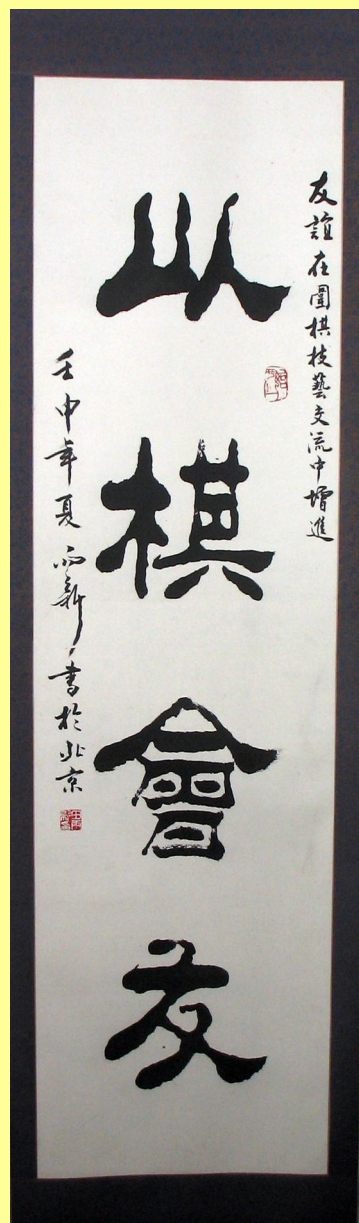 友誼在圍棋技藝交流中增進
以棋會友
壬申年夏 雨新 書於北京